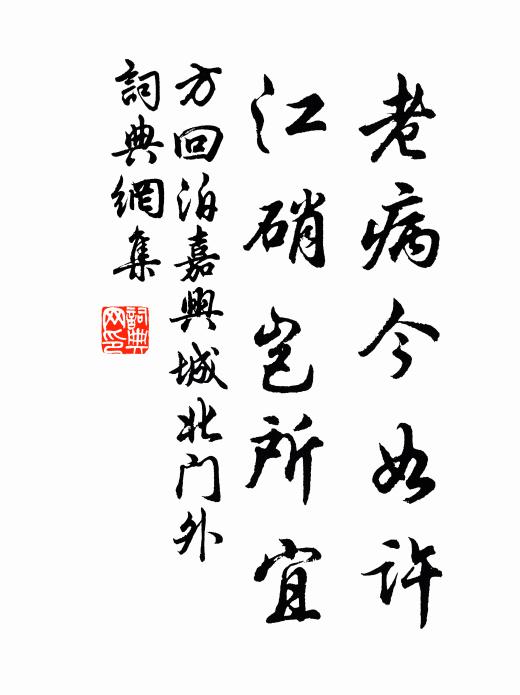 老病今如許
江硝岂所宜
方回泊嘉興城北门外
詞典網集
詞典网印